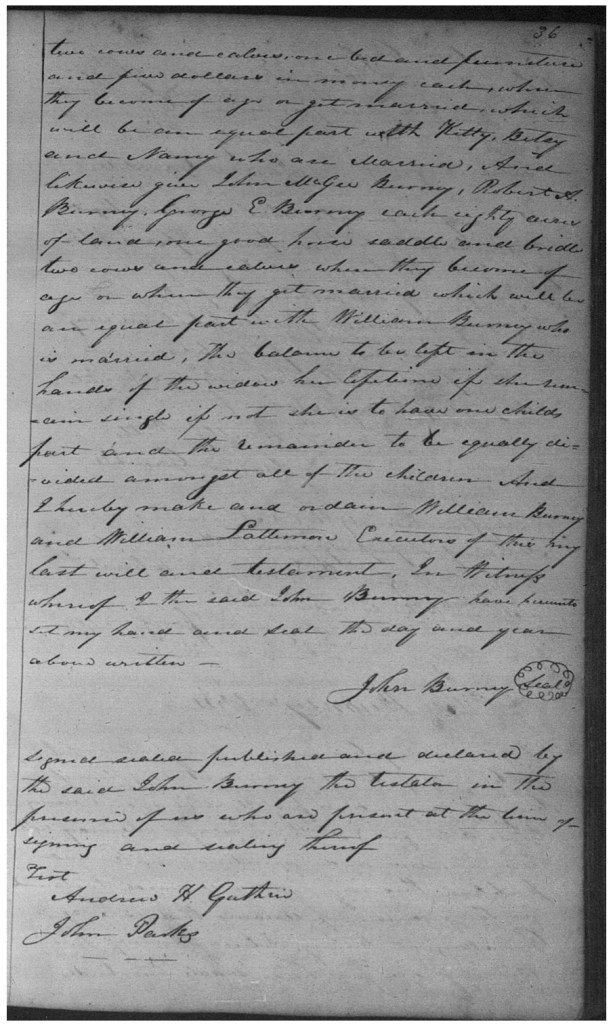 36
two cows and calves, one bed and furniture
and five dollars in money each, when
they become of age or get married, which
will be an equal part with Kitty, Betsy
and Nancy who are Married, And
likewise give John McGee Burney, Robert A.
Burney, George E. Burney each eighty acres
of land, one good horse saddle and bridle
two cows and calves when they become of
age or when they get married which will be
an equal part with William Burney who
is married, The balance to be left in the
hands of the widow her lifetime if she rem-
-ain single if not she is to have one childs
part and the remainder to be equally di-
-vided amongst all of the children And
I hereby make and ordain William Burney
and William Executors of this my
last will and testament, In Witness
whereof I the said John Burney have hereunto
set my hand and seal the day and year
above written —
John Burney Seal
signed sealed published and declared by
the said John Burney the testator in the
presence of us who are present at the time of
signing and sealing thereof
Test
Andrew H Guthrie
John Parks